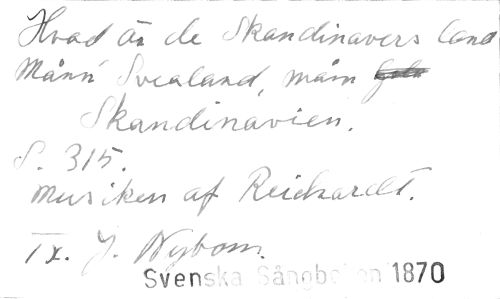 Hvad är de Skandinavers land
Månn' Svealand, mån
Skandinavien.
S. 315.
Musiken af Reichardt.
Tx. J. Nybom.
Svenska Sångboken 1870